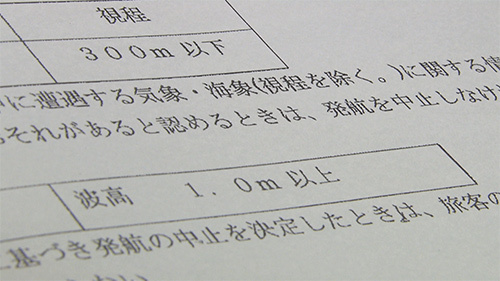 視程
300m 以下
に遭遇する気象・海象(視程を除く。)に関する情
それがあると認めるときは、発航を中止しなけ
波高 1.0m 以上
基づき発航の中止を決定したときは、旅客の
ない